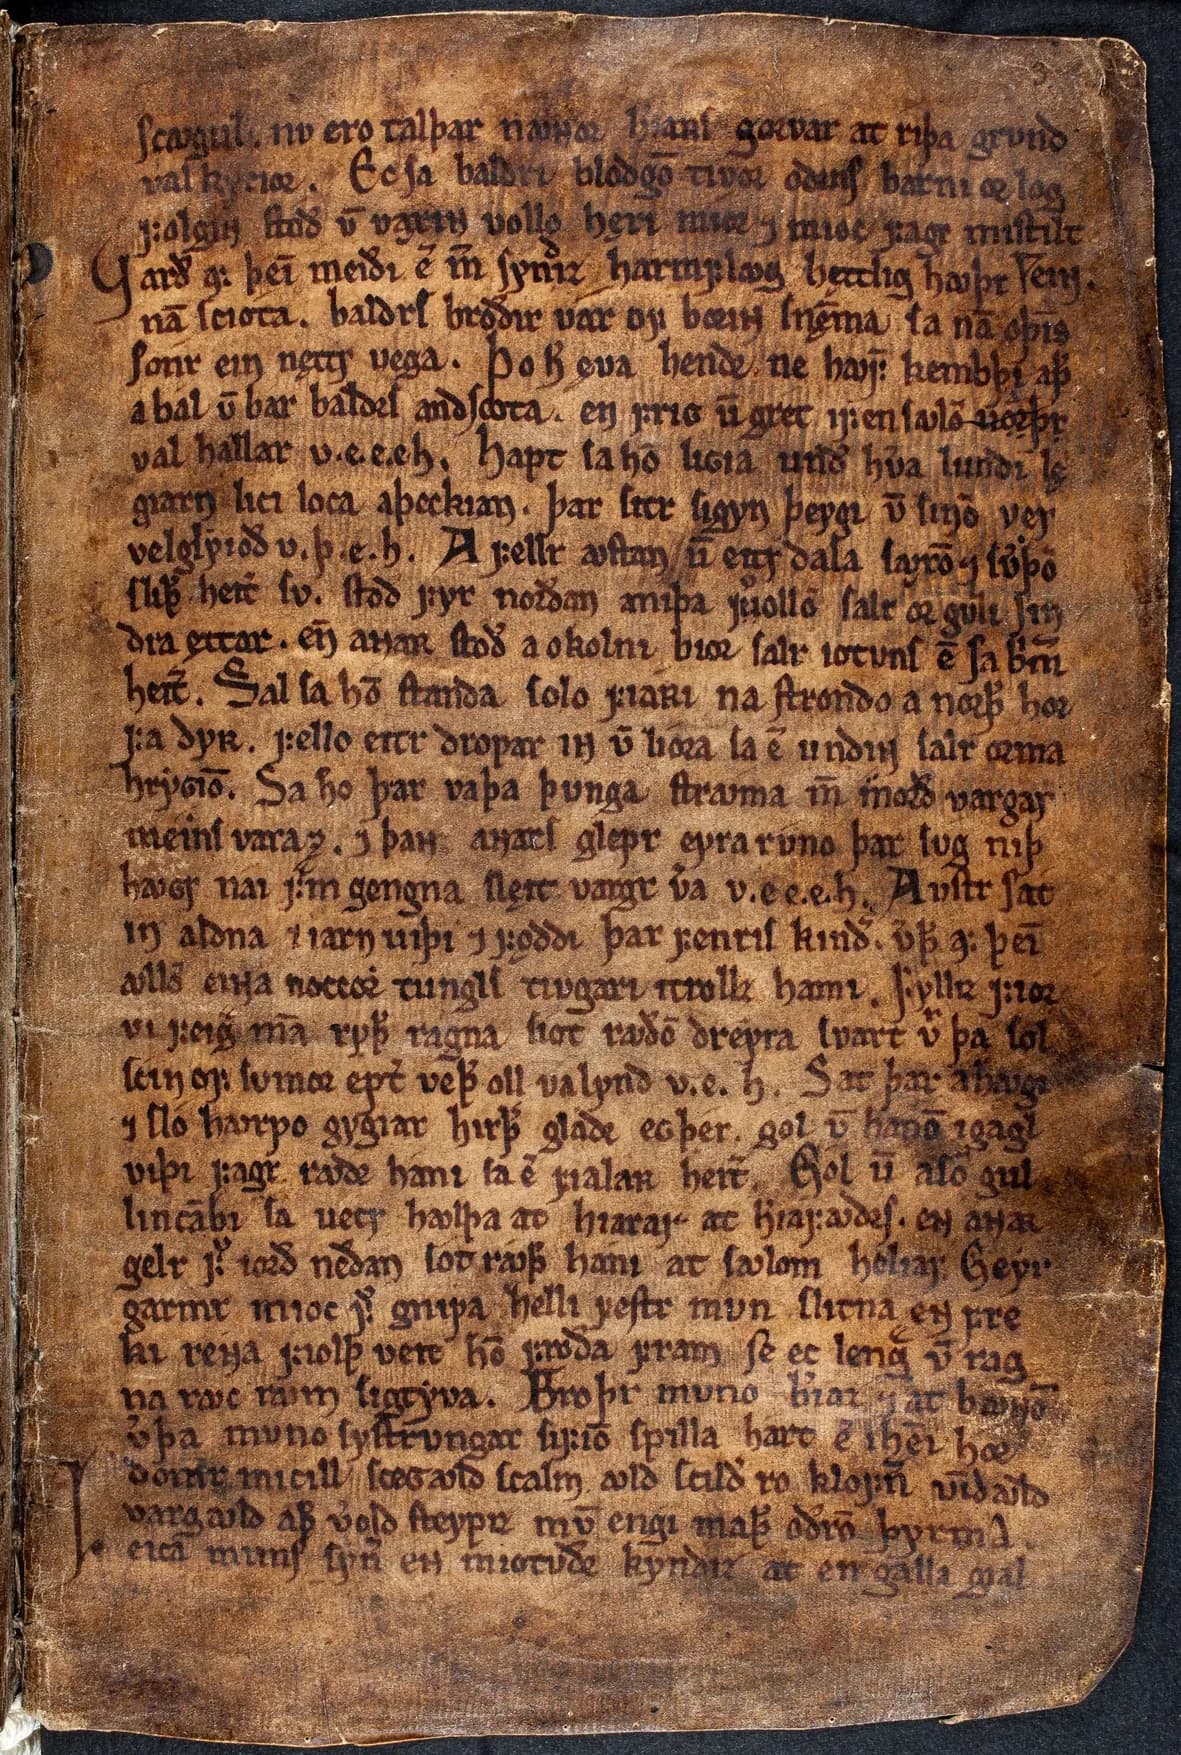 scꜹgul. nv ero talþar nꜹɴor herians gorvar at riþa grvnd
valkyrior. Ec sa baldri blodgō tivor odins barni ørlog
folgin stod v̄ vaxiɴ vollo hęri mior ⁊ mioc fagr mistilt
Varð af þeī meiði ē m̄ syndiz harmflꜹg hęttlig hꜹþr
nā sciota. baldrs broðir var of boriɴ snēma sa nā oþins
sonr ein nęttr vega. Þo h̄ ęva hendr ne hꜹfuþ kembþi aþr
a bal v̄ bar baldrs andscota. en frig v̄ gret i fen sꜹlō
val hallar v.e.e.e.h. Hapt sa hō ligia undir hvera lundi lę
giarn liki loca aþeckian. þar sitr sigyn þeygi v̄ sinō ver
vel glyioð v.þ.e.h. A fellr ꜹstan v̄ eitrdala sꜹxō ⁊ sverþō
sliþr heitir sv. stod fyr norðan a niþa vollō salr or gulli sin
dra ęttar. en aɴaʀ stoð a okolni bior salr iotvns ē sa brimir
heitir. Sal sa hō standa solo fiaʀi na strondo a norþr hor
fa dyʀ. fello eitr dropar iɴ v̄ liora sa ē undiɴ salr orma
hryGiō. Sa ho þar vaþa þvnga strꜹma m̄ meinsvara
⁊ morðvargar ⁊ þaɴ aɴars glepr eyra rvno þar sꜹg niþ
hꜹGr nai fram gengna sleit vargr vera v.e.e.e.h. Avstr sat
in aldna i iarnviþi ⁊ foddi þar fenris kindir. verþr af þeī
ꜹllō eiɴa noccoʀ tungls tivgari i trollz hami. Fylliz fior
vi feigra māna ryþr ragna siot rꜹðō dreyra svart verþa sol
scin of sumor eptir veþr oll valynd v.e. h. Sat þar a hꜹgi
⁊ slo hꜹrpo gygiar hirþir glaðr egþer. gol v̄ hanō i gagl
viþi fagr rꜹðr hani sa ē fialaʀ heitir. Gol v̄ asō gul
lincābi sa vecr hꜹlþa at hiarar at heriafꜹðrs. en aɴaʀ
gelr f iorð neðan sotrꜹþr hani at sꜹlom heliar. Geyr
garmr mioc f gnipa helli festr mvn slitna en fre
ki reɴa fiolþ veit hō frøda fram se ec lengra v̄ rag
na rꜹc rꜹm sigtyva. Broþr mvno beriaz ⁊ at bꜹnō
verþa mvno systrvngar sifiō spilla hart ē i heimi hor
domr mikill sceGꜹld scalm ꜹld scildir ro klofnir vindꜹld
vargꜹld aþr verold steypiz mvn engi maþr oðrō þyrma.
Leika mims synir en miotvðr kyndiz at en galla gial